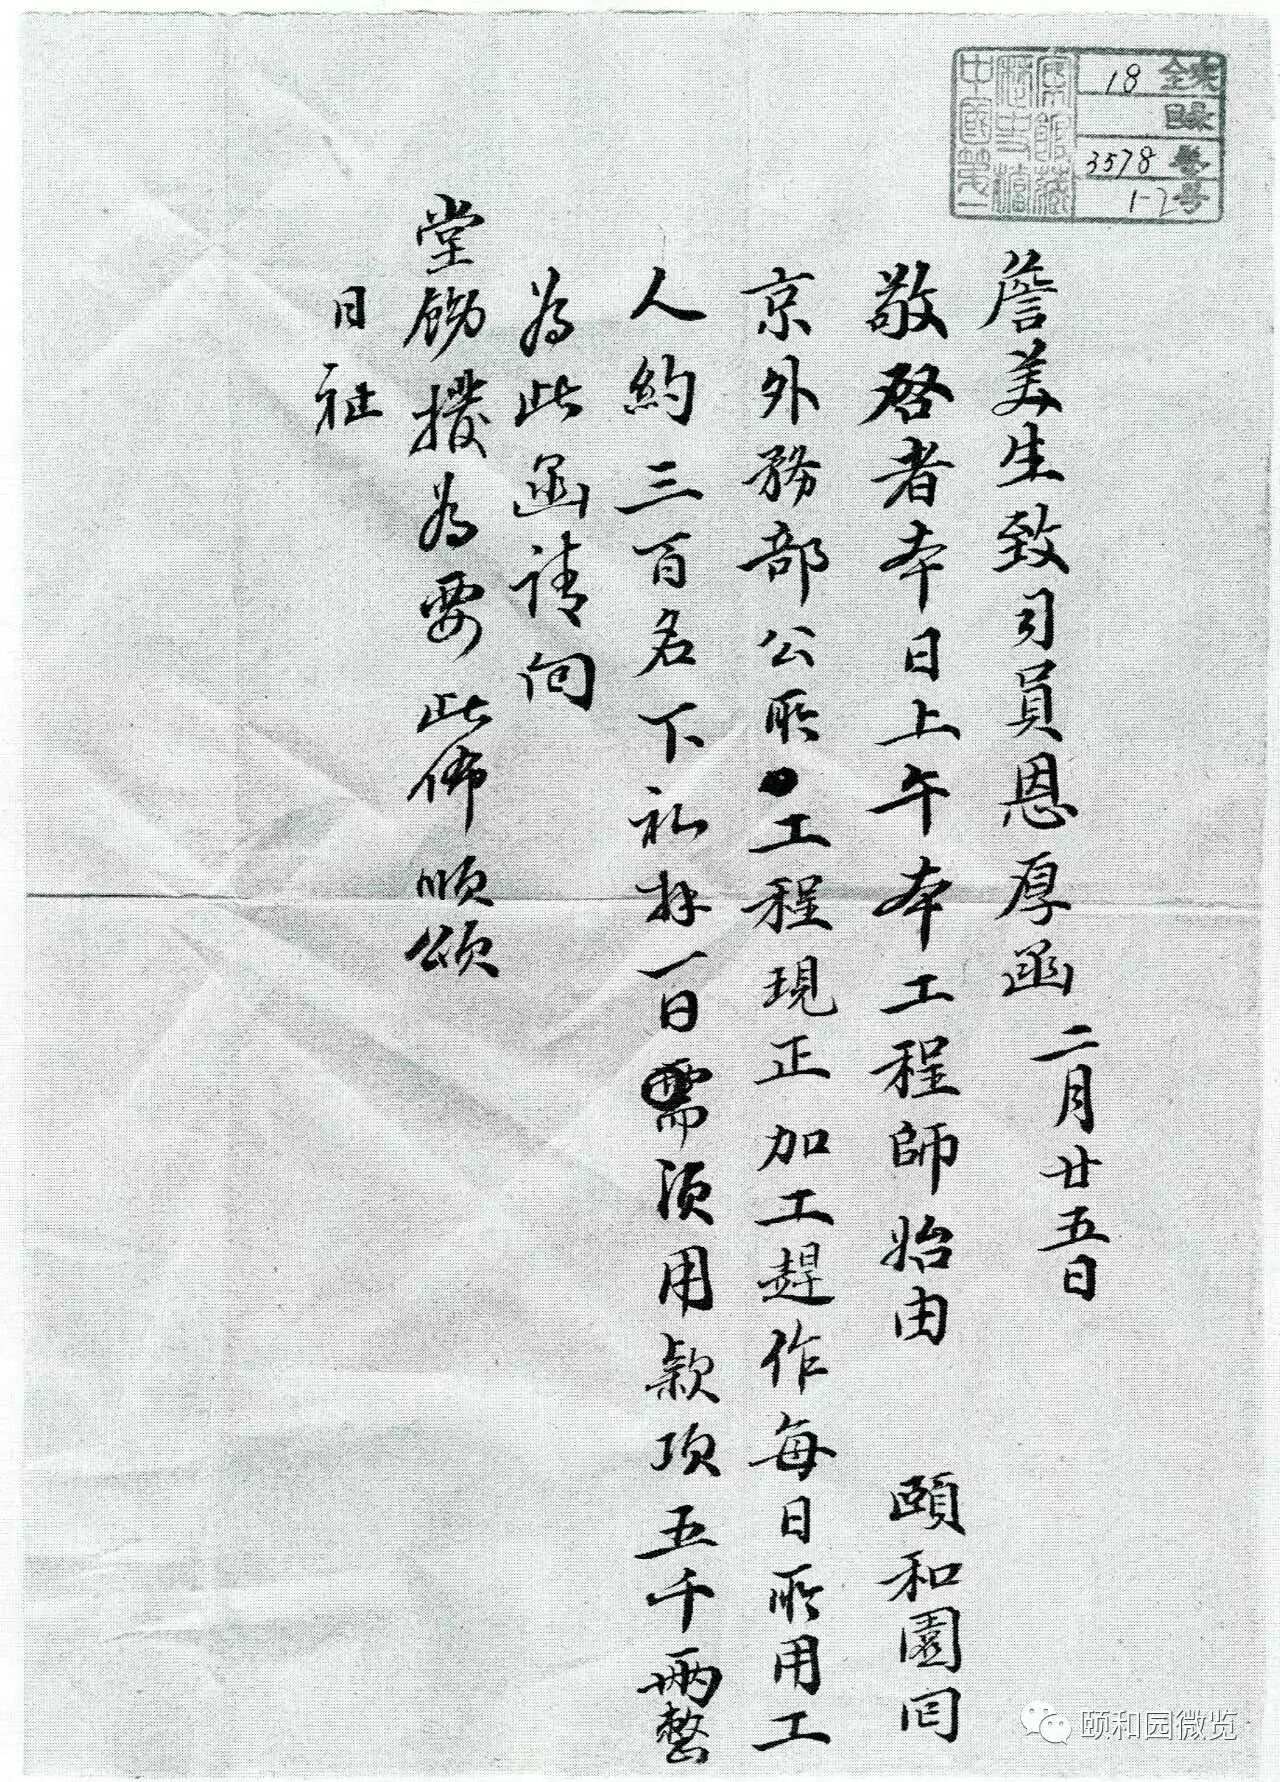 詹美生致司員恩厚函 二月廿五日
敬啓者本日上午本工程師始由 頤和園囘
京外務部公所工程現正加工趕作每日所用工
人約三百名下礼拜一日需須用款項五千兩整
為此函請向
堂餙撥為要 此佈順頌
日祉
全宗 18
目录
卷 3578
号 1-2
中國第一歷史檔案館藏
颐和园微览